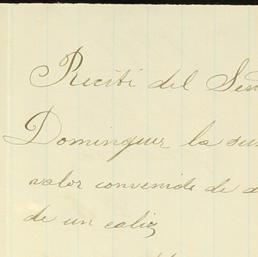 Recibí del Señ
Dominguez la su
valor convenido de
de un caliz